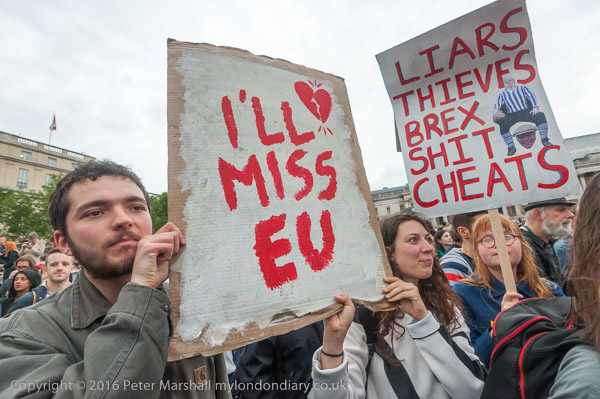 I'LL
MISS
EU
LIARS
THIEVES
BREX
SHIT
CHEATS
Copyright © 2016 Peter Marshall mylondondiary.co.uk